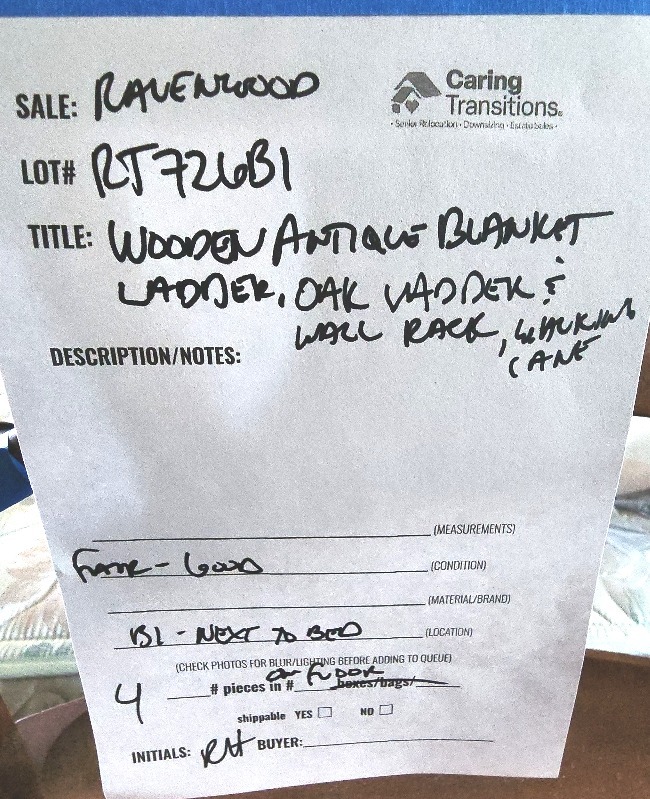 SALE: RAVENWOOD
Caring
Transitions®
• Senior Relocation • Downsizing • Estate Sales •
LOT# RT726B1
TITLE: WOODEN ANTIQUE BLANKET
LADDER, OAK LADDER &
WALL RACK, WALKING
CANE
DESCRIPTION/NOTES:
(MEASUREMENTS)
FAIR - GOOD (CONDITION)
(MATERIAL/BRAND)
B1 - NEXT TO BED (LOCATION)
(CHECK PHOTOS FOR BLUR/LIGHTING BEFORE ADDING TO QUEUE)
on FLOOR
4 # pieces in # boxes/bags/
shippable YES NO
INITIALS: RH BUYER: